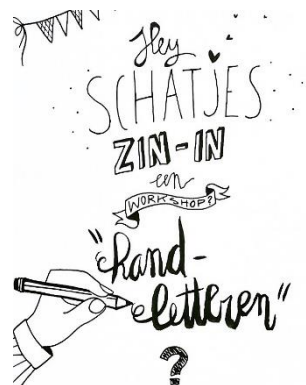 Hey
SCHATJES
ZIN-IN
een
WORKSHOP?
"hand-
letteren"
?